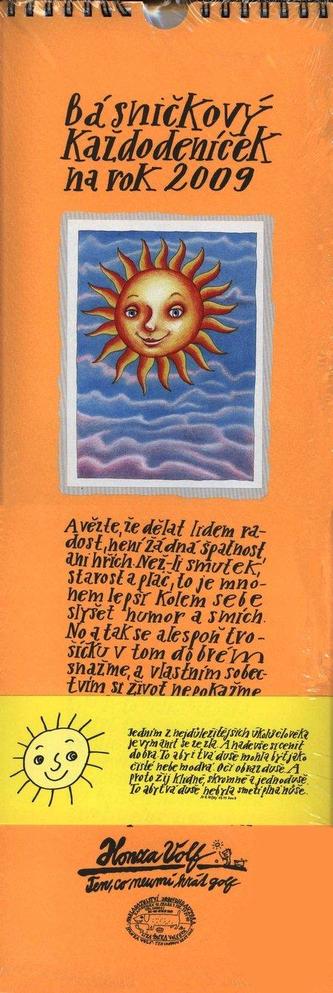 Básničkový
Každodeníček
na rok 2009
A vězte, že dělat lidem ra-
dost, není žádná špatnost,
ani hřích. Než-li smutek
starost a pláč, to je mno-
hem lepší kolem sebe
slyšet humor a smích.
No a tak se alespoň tro-
šičku v tom dobrém
snažme, a vlastním sobec-
tvím si život nepokažme
Jedním z nejdůležitějších úkolů člověka
je vymanit se ze zla. A nadevše si cenit
dobra. To aby i tvá duše mohla být jako
čisté nebe modrá. Oči obraz duše. A
proto žij klidně, skromně a jednoduše.
To aby tvá duše nebyla smetí plná nůše.
Honza Volf
Ten, co neumí hrát golf